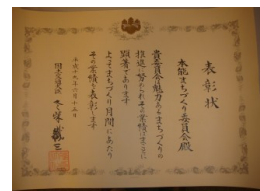 表彰状
本能まちづくり委員会殿
貴委員会は魅力あるまちづくりの
推進に努められその業績はまことに
顕著であります
よってまちづくり月間にあたり
その業績を表彰します
平成十九年六月十三日
国土交通大臣 冬柴鐵三